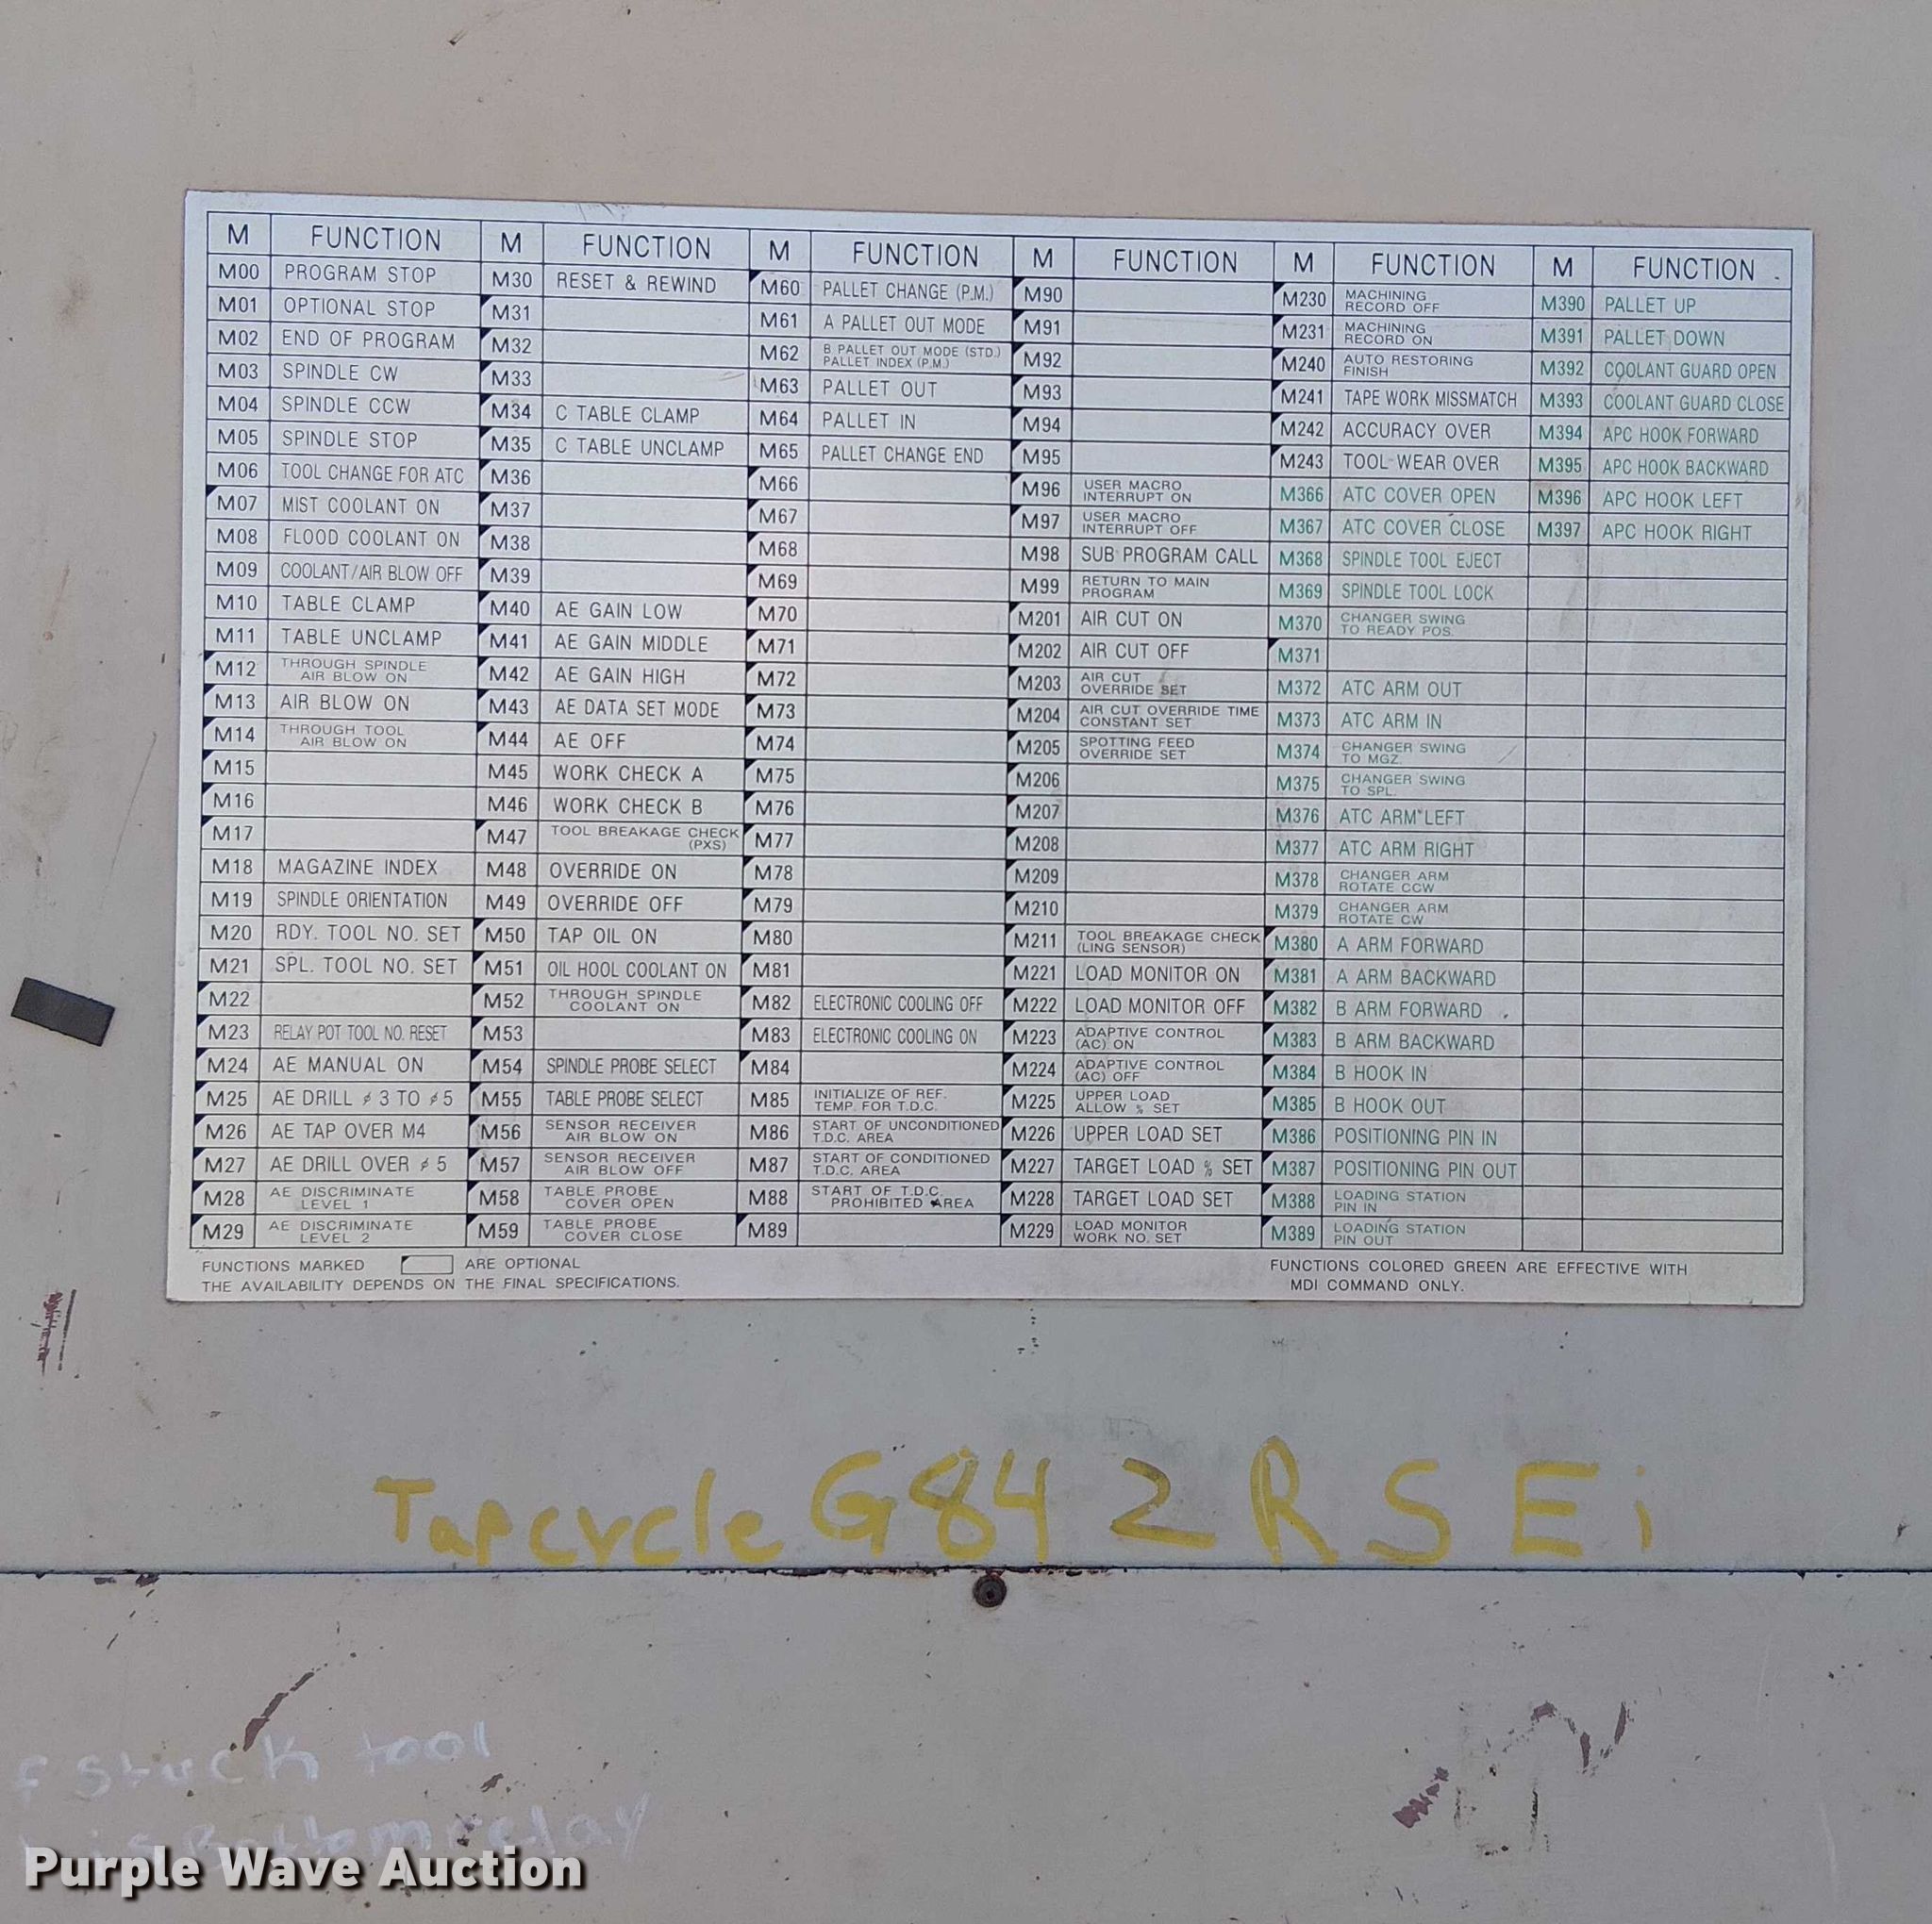 M FUNCTION M FUNCTION M FUNCTION M FUNCTION M FUNCTION M FUNCTION
M00 PROGRAM STOP M30 RESET & REWIND M60 PALLET CHANGE (P.M.) M90 M230 MACHINING RECORD OFF M390 PALLET UP
M01 OPTIONAL STOP M31 M61 A PALLET OUT MODE M91 M231 MACHINING RECORD ON M391 PALLET DOWN
M02 END OF PROGRAM M32 M62 B PALLET OUT MODE (STD.) PALLET INDEX (P.M.) M92 M240 AUTO RESTORING FINISH M392 COOLANT GUARD OPEN
M03 SPINDLE CW M33 M63 PALLET OUT M93 M241 TAPE WORK MISSMATCH M393 COOLANT GUARD CLOSE
M04 SPINDLE CCW M34 C TABLE CLAMP M64 PALLET IN M94 M242 ACCURACY OVER M394 APC HOOK FORWARD
M05 SPINDLE STOP M35 C TABLE UNCLAMP M65 PALLET CHANGE END M95 M243 TOOL WEAR OVER M395 APC HOOK BACKWARD
M06 TOOL CHANGE FOR ATC M36 M66 M96 USER MACRO INTERRUPT ON M366 ATC COVER OPEN M396 APC HOOK LEFT
M07 MIST COOLANT ON M37 M67 M97 USER MACRO INTERRUPT OFF M367 ATC COVER CLOSE M397 APC HOOK RIGHT
M08 FLOOD COOLANT ON M38 M68 M98 SUB PROGRAM CALL M368 SPINDLE TOOL EJECT
M09 COOLANT/AIR BLOW OFF M39 M69 M99 RETURN TO MAIN PROGRAM M369 SPINDLE TOOL LOCK
M10 TABLE CLAMP M40 AE GAIN LOW M70 M201 AIR CUT ON M370 CHANGER SWING TO READY POS.
M11 TABLE UNCLAMP M41 AE GAIN MIDDLE M71 M202 AIR CUT OFF M371
M12 THROUGH SPINDLE AIR BLOW ON M42 AE GAIN HIGH M72 M203 AIR CUT OVERRIDE SET M372 ATC ARM OUT
M13 AIR BLOW ON M43 AE DATA SET MODE M73 M204 AIR CUT OVERRIDE TIME CONSTANT SET M373 ATC ARM IN
M14 THROUGH TOOL AIR BLOW ON M44 AE OFF M74 M205 SPOTTING FEED OVERRIDE SET M374 CHANGER SWING TO MGZ.
M15 M45 WORK CHECK A M75 M206 M375 CHANGER SWING TO SPL.
M16 M46 WORK CHECK B M76 M207 M376 ATC ARM LEFT
M17 M47 TOOL BREAKAGE CHECK (PXS) M77 M208 M377 ATC ARM RIGHT
M18 MAGAZINE INDEX M48 OVERRIDE ON M78 M209 M378 CHANGER ARM ROTATE CCW
M19 SPINDLE ORIENTATION M49 OVERRIDE OFF M79 M210 M379 CHANGER ARM ROTATE CW
M20 RDY. TOOL NO. SET M50 TAP OIL ON M80 M211 TOOL BREAKAGE CHECK (LING SENSOR) M380 A ARM FORWARD
M21 SPL. TOOL NO. SET M51 OIL HOOL COOLANT ON M81 M221 LOAD MONITOR ON M381 A ARM BACKWARD
M22 M52 THROUGH SPINDLE COOLANT ON M82 ELECTRONIC COOLING OFF M222 LOAD MONITOR OFF M382 B ARM FORWARD
M23 RELAY POT TOOL NO. RESET M53 M83 ELECTRONIC COOLING ON M223 ADAPTIVE CONTROL (AC) ON M383 B ARM BACKWARD
M24 AE MANUAL ON M54 SPINDLE PROBE SELECT M84 M224 ADAPTIVE CONTROL (AC) OFF M384 B HOOK IN
M25 AE DRILL ø 3 TO ø 5 M55 TABLE PROBE SELECT M85 INITIALIZE OF REF. TEMP. FOR T.D.C. M225 UPPER LOAD ALLOW % SET M385 B HOOK OUT
M26 AE TAP OVER M4 M56 SENSOR RECEIVER AIR BLOW ON M86 START OF UNCONDITIONED T.D.C. AREA M226 UPPER LOAD SET M386 POSITIONING PIN IN
M27 AE DRILL OVER ø 5 M57 SENSOR RECEIVER AIR BLOW OFF M87 START OF CONDITIONED T.D.C. AREA M227 TARGET LOAD % SET M387 POSITIONING PIN OUT
M28 AE DISCRIMINATE LEVEL 1 M58 TABLE PROBE COVER OPEN M88 START OF T.D.C. PROHIBITED AREA M228 TARGET LOAD SET M388 LOADING STATION PIN IN
M29 AE DISCRIMINATE LEVEL 2 M59 TABLE PROBE COVER CLOSE M89 M229 LOAD MONITOR WORK NO. SET M389 LOADING STATION PIN OUT
FUNCTIONS MARKED ARE OPTIONAL FUNCTIONS COLORED GREEN ARE EFFECTIVE WITH
THE AVAILABILITY DEPENDS ON THE FINAL SPECIFICATIONS. MDI COMMAND ONLY.
Tap cycle G84 2 R S E i
Stuck tool
Purple Wave Auction